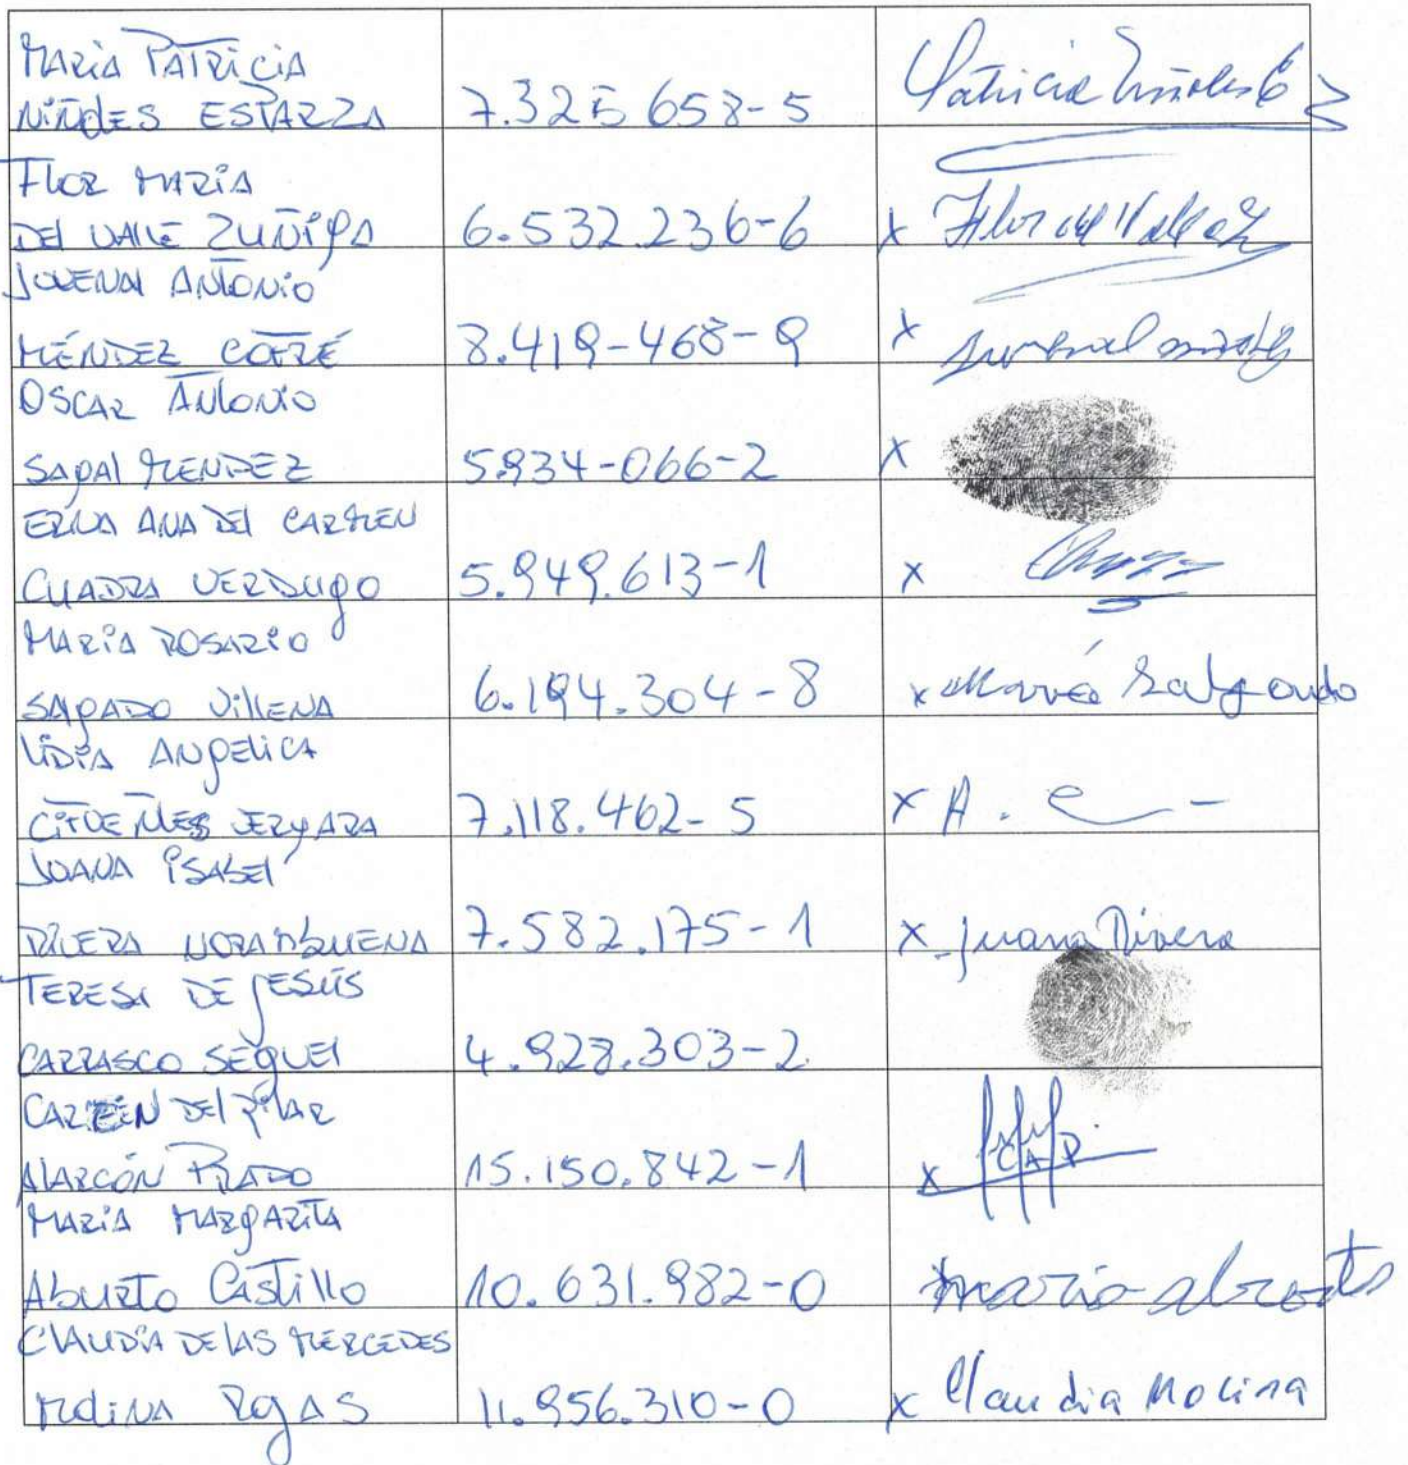 MARIA PATRICIA
NIÑOLES ESPARZA 7.325 658-5 Patricia Niñoles E
FLOR MARIA
DEL VALLE ZUÑIGA 6.532.236-6 x Flor del Valle Z
JUVENAL ANTONIO
MÉNDEZ COFRÉ 8.419-468-9 x Juvenal
OSCAR ANTONIO
SAGAL MENDEZ 5.934-066-2 x
ERICA ANA DEL CARMEN
CUADRA VERDUGO 5.949.613-1 x
MARIA ROSARIO
SALGADO VILLENA 6.194.304-8 x Maria Salgado
LIDIA ANGELICA
CIFUENTES VERGARA 7.118.462-5 x A. C
JUANA ISABEL
RIVERA NORAMBUENA 7.582.175-1 x Juana Rivera
TERESA DE JESÚS
CARRASCO SEGUEL 4.928.303-2
CARMEN DEL PILAR
ALARCÓN PRADO 15.150.842-1 x C A P.
MARIA MARGARITA
Aburto Castillo 10.631.982-0 maria
CLAUDIA DE LAS MERCEDES
MOLINA ROJAS 11.956.310-0 x Claudia Molina